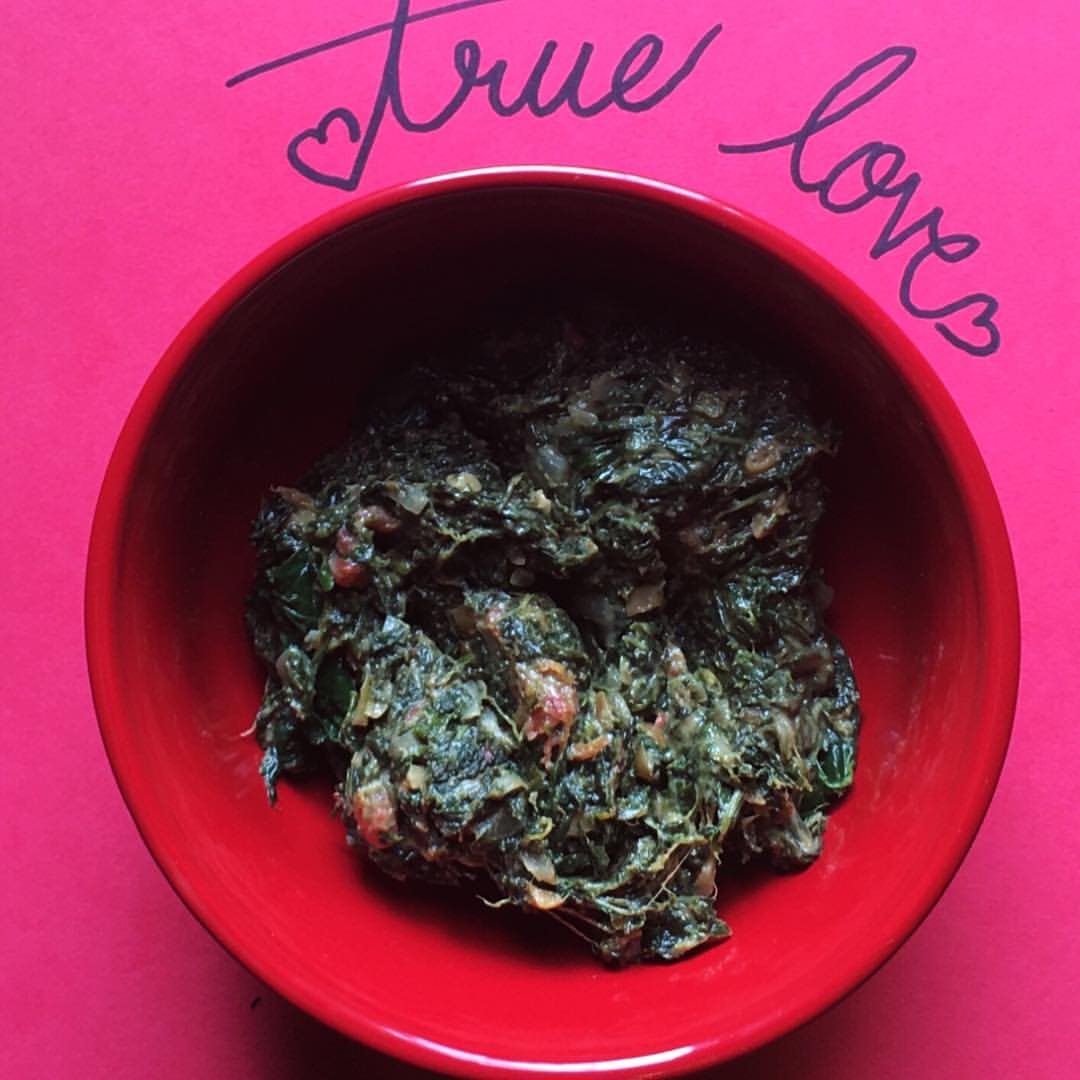 true love